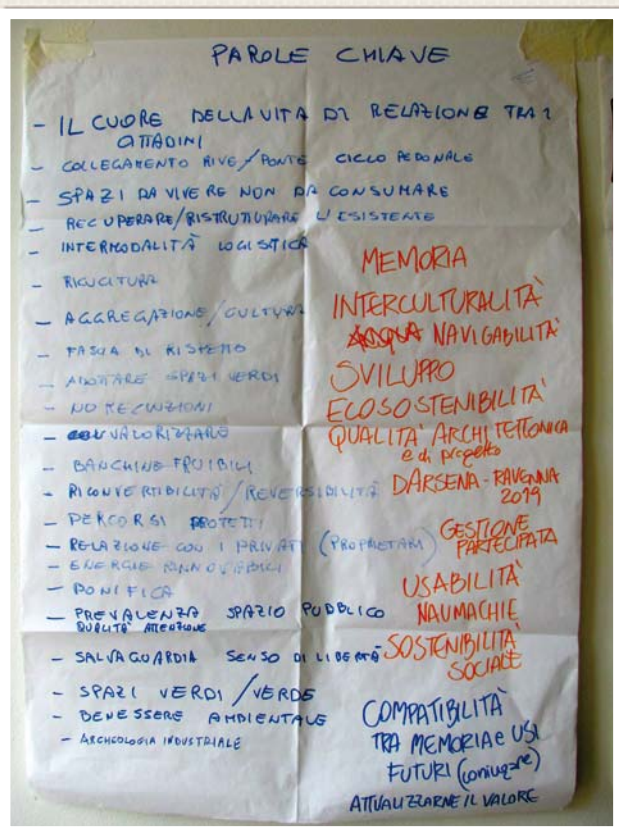 PAROLE CHIAVE
- IL CUORE DELLA VITA DI RELAZIONE TRA I
CITTADINI
- COLLEGAMENTO RIVE/PONTE CICLO PEDONALE
- SPAZI DA VIVERE NON DA CONSUMARE
- RECUPERARE/RISTRUTTURARE L'ESISTENTE
- INTERMODALITÀ LOGISTICA
- RICUCITURA
- AGGREGAZIONE/CULTURA
- FASCIA DI RISPETTO
- ADOTTARE SPAZI VERDI
- NO RECINZIONI
- VALORIZZARE
- BANCHINE FRUIBILI
- RICONVERTIBILITÀ/REVERSIBILITÀ
- PERCORSI PROTETTI
- RELAZIONE CON I PRIVATI (PROPRIETARI)
- ENERGIE RINNOVABILI
- BONIFICA
- PREVALENZA SPAZIO PUBBLICO
QUALITÀ ATTENZIONE
- SALVAGUARDIA SENSO DI LIBERTÀ
- SPAZI VERDI/VERDE
- BENESSERE AMBIENTALE
- ARCHEOLOGIA INDUSTRIALE
MEMORIA
INTERCULTURALITÀ
ACQUA NAVIGABILITÀ
SVILUPPO
ECOSOSTENIBILITA'
QUALITA' ARCHITETTONICA
e di progetto
DARSENA - RAVENNA
2019
GESTIONE
PARTECIPATA
USABILITÀ
NAUMACHIE
SOSTENIBILITÀ
SOCIALE
COMPATIBILITÀ
TRA MEMORIA e USI
FUTURI (coniugare)
ATTUALIZZARNE IL VALORE